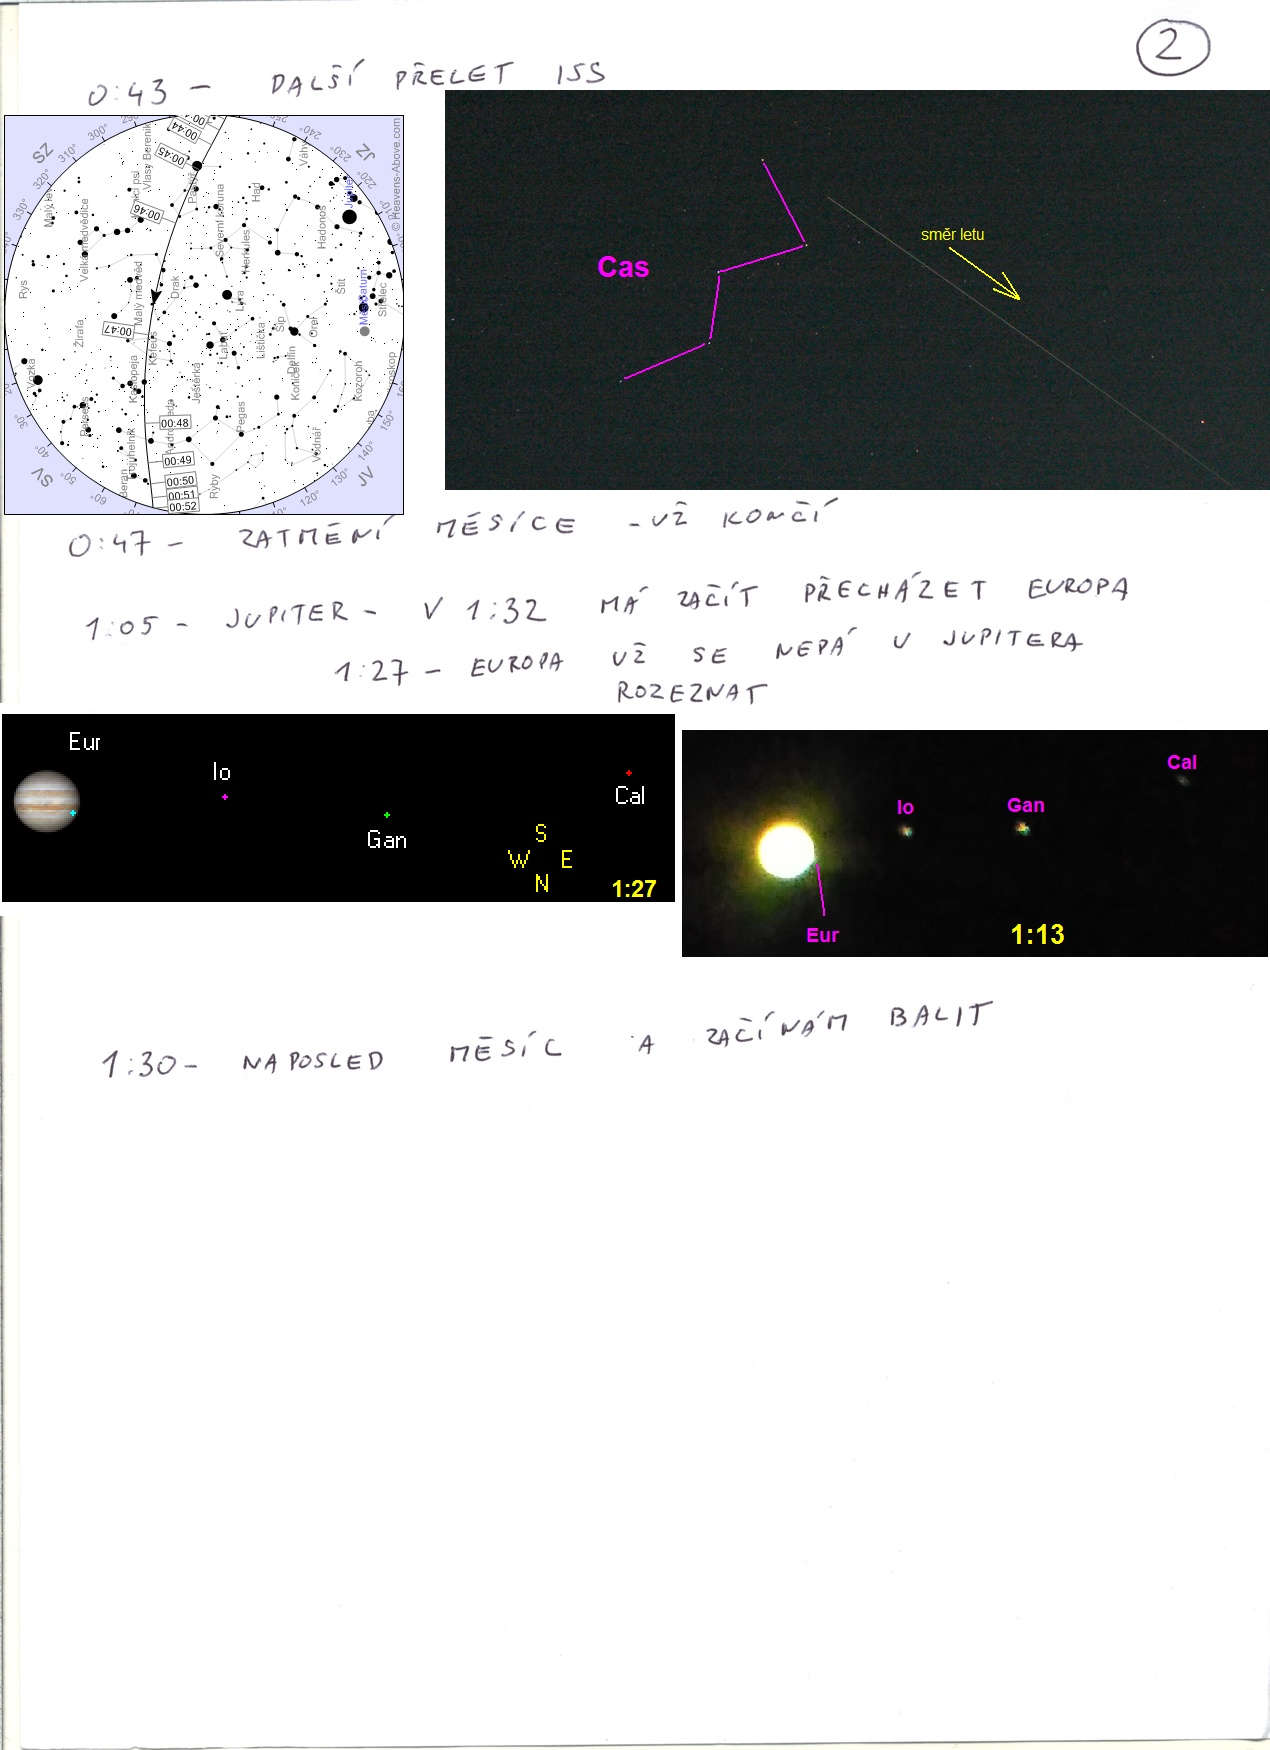 2
0:43 - DALŠÍ PŘELET ISS
© Heavens-Above.com
SZ
JZ
SV
JV
300°
310°
320°
330°
240°
230°
220°
210°
30°
40°
50°
60°
120°
130°
140°
150°
00:44
00:45
00:46
00:47
00:48
00:49
00:50
00:51
00:52
Vlasy Bereniky
Velká medvědice
Malý medvěd
Drak
Severní koruna
Herkules
Had
Hadonoš
Váhy
Jupiter
Saturn
Štít
Střelec
Rys
Žirafa
Kefeus
Lyra
Labuť
Lištička
Šíp
Orel
Delfín
Koníček
Kozoroh
Vozka
Perseus
Kasiopeja
Ještěrka
Pegas
Vodnář
Beran
Trojúhelník
Ryby
Cas
směr letu
0:47 - ZATMĚNÍ MĚSÍCE - UŽ KONČÍ
1:05 - JUPITER - V 1:32 MÁ ZAČÍT PŘECHÁZET EUROPA
1:27 - EUROPA UŽ SE NEPÁ U JUPITERA
ROZEZNAT
Eur
Io
Gan
Cal
S
W E
N
1:27
Cal
Io
Gan
Eur
1:13
1:30 - NAPOSLED MĚSÍC A ZAČÍNÁM BALIT